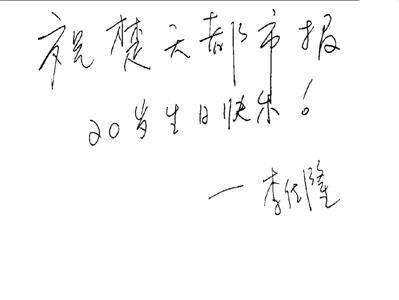 祝楚天都市报
20岁生日快乐！
—李衍隆